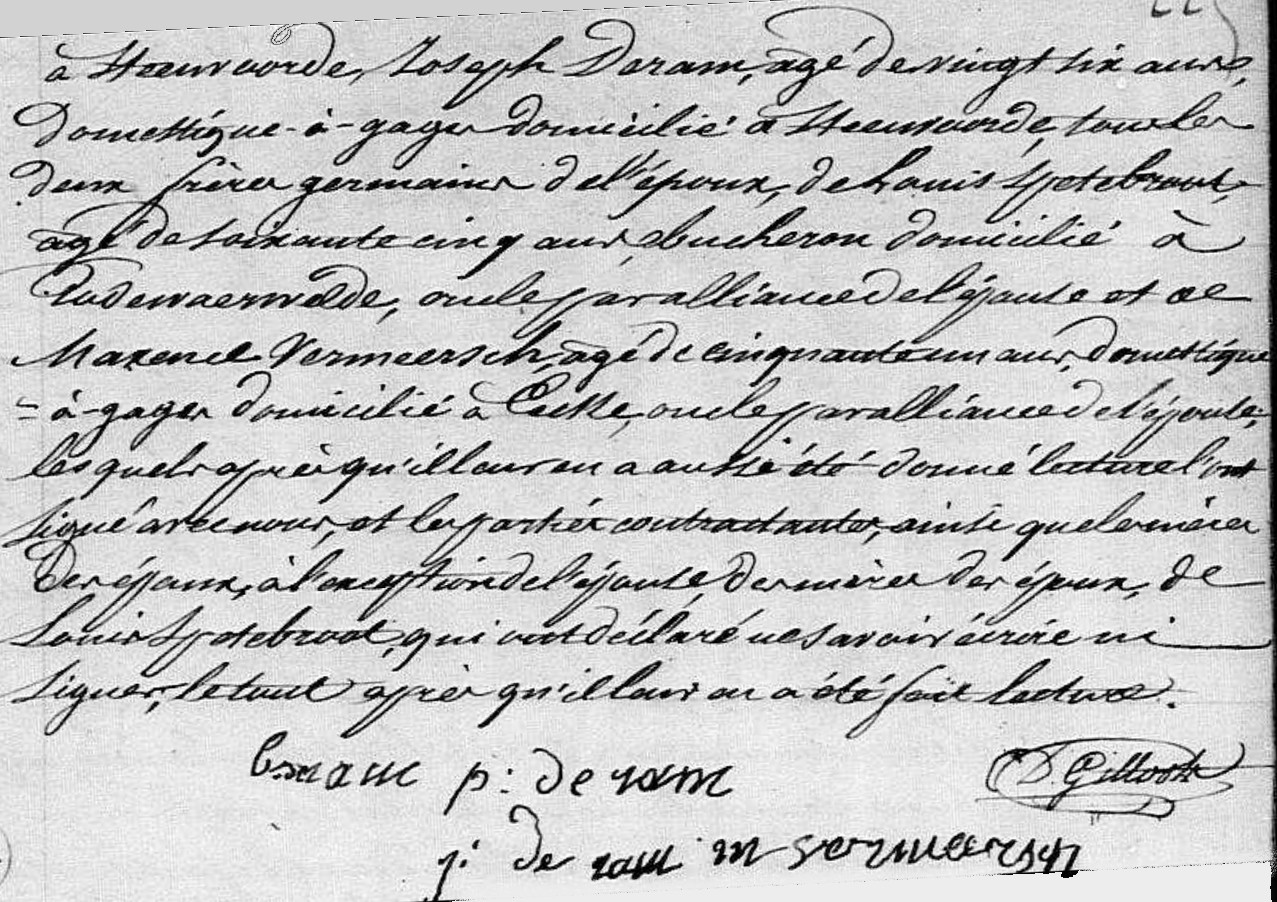 à Steenvoorde, Joseph Deram, agé de vingt six ans,
domestique-à-gages domicilié à Steenvoorde, tous les
deux frères germains de l'époux, de Louis Spetebroot,
agé de soixante cinq ans, bucheron domicilié à
Godewaersvelde, oncle par alliance de l'épouse et de
Maxence Vermeersch, agé de cinquante un ans, domestique
= à-gages domicilié à Eecke, oncle par alliance de l'épouse,
les quels après qu'il leur en a aussi été donné lecture l'ont
signé avec nous, et les parties contractantes, ainsi que les mères
des époux, à l'exception de l'épouse, des mères des époux, de
Louis Spetebroot, qui ont déclaré ne savoir écrire ni
signer, le tout après qu'il leur en a été fait lecture.
p: de ram
j: de ram m vermeersch